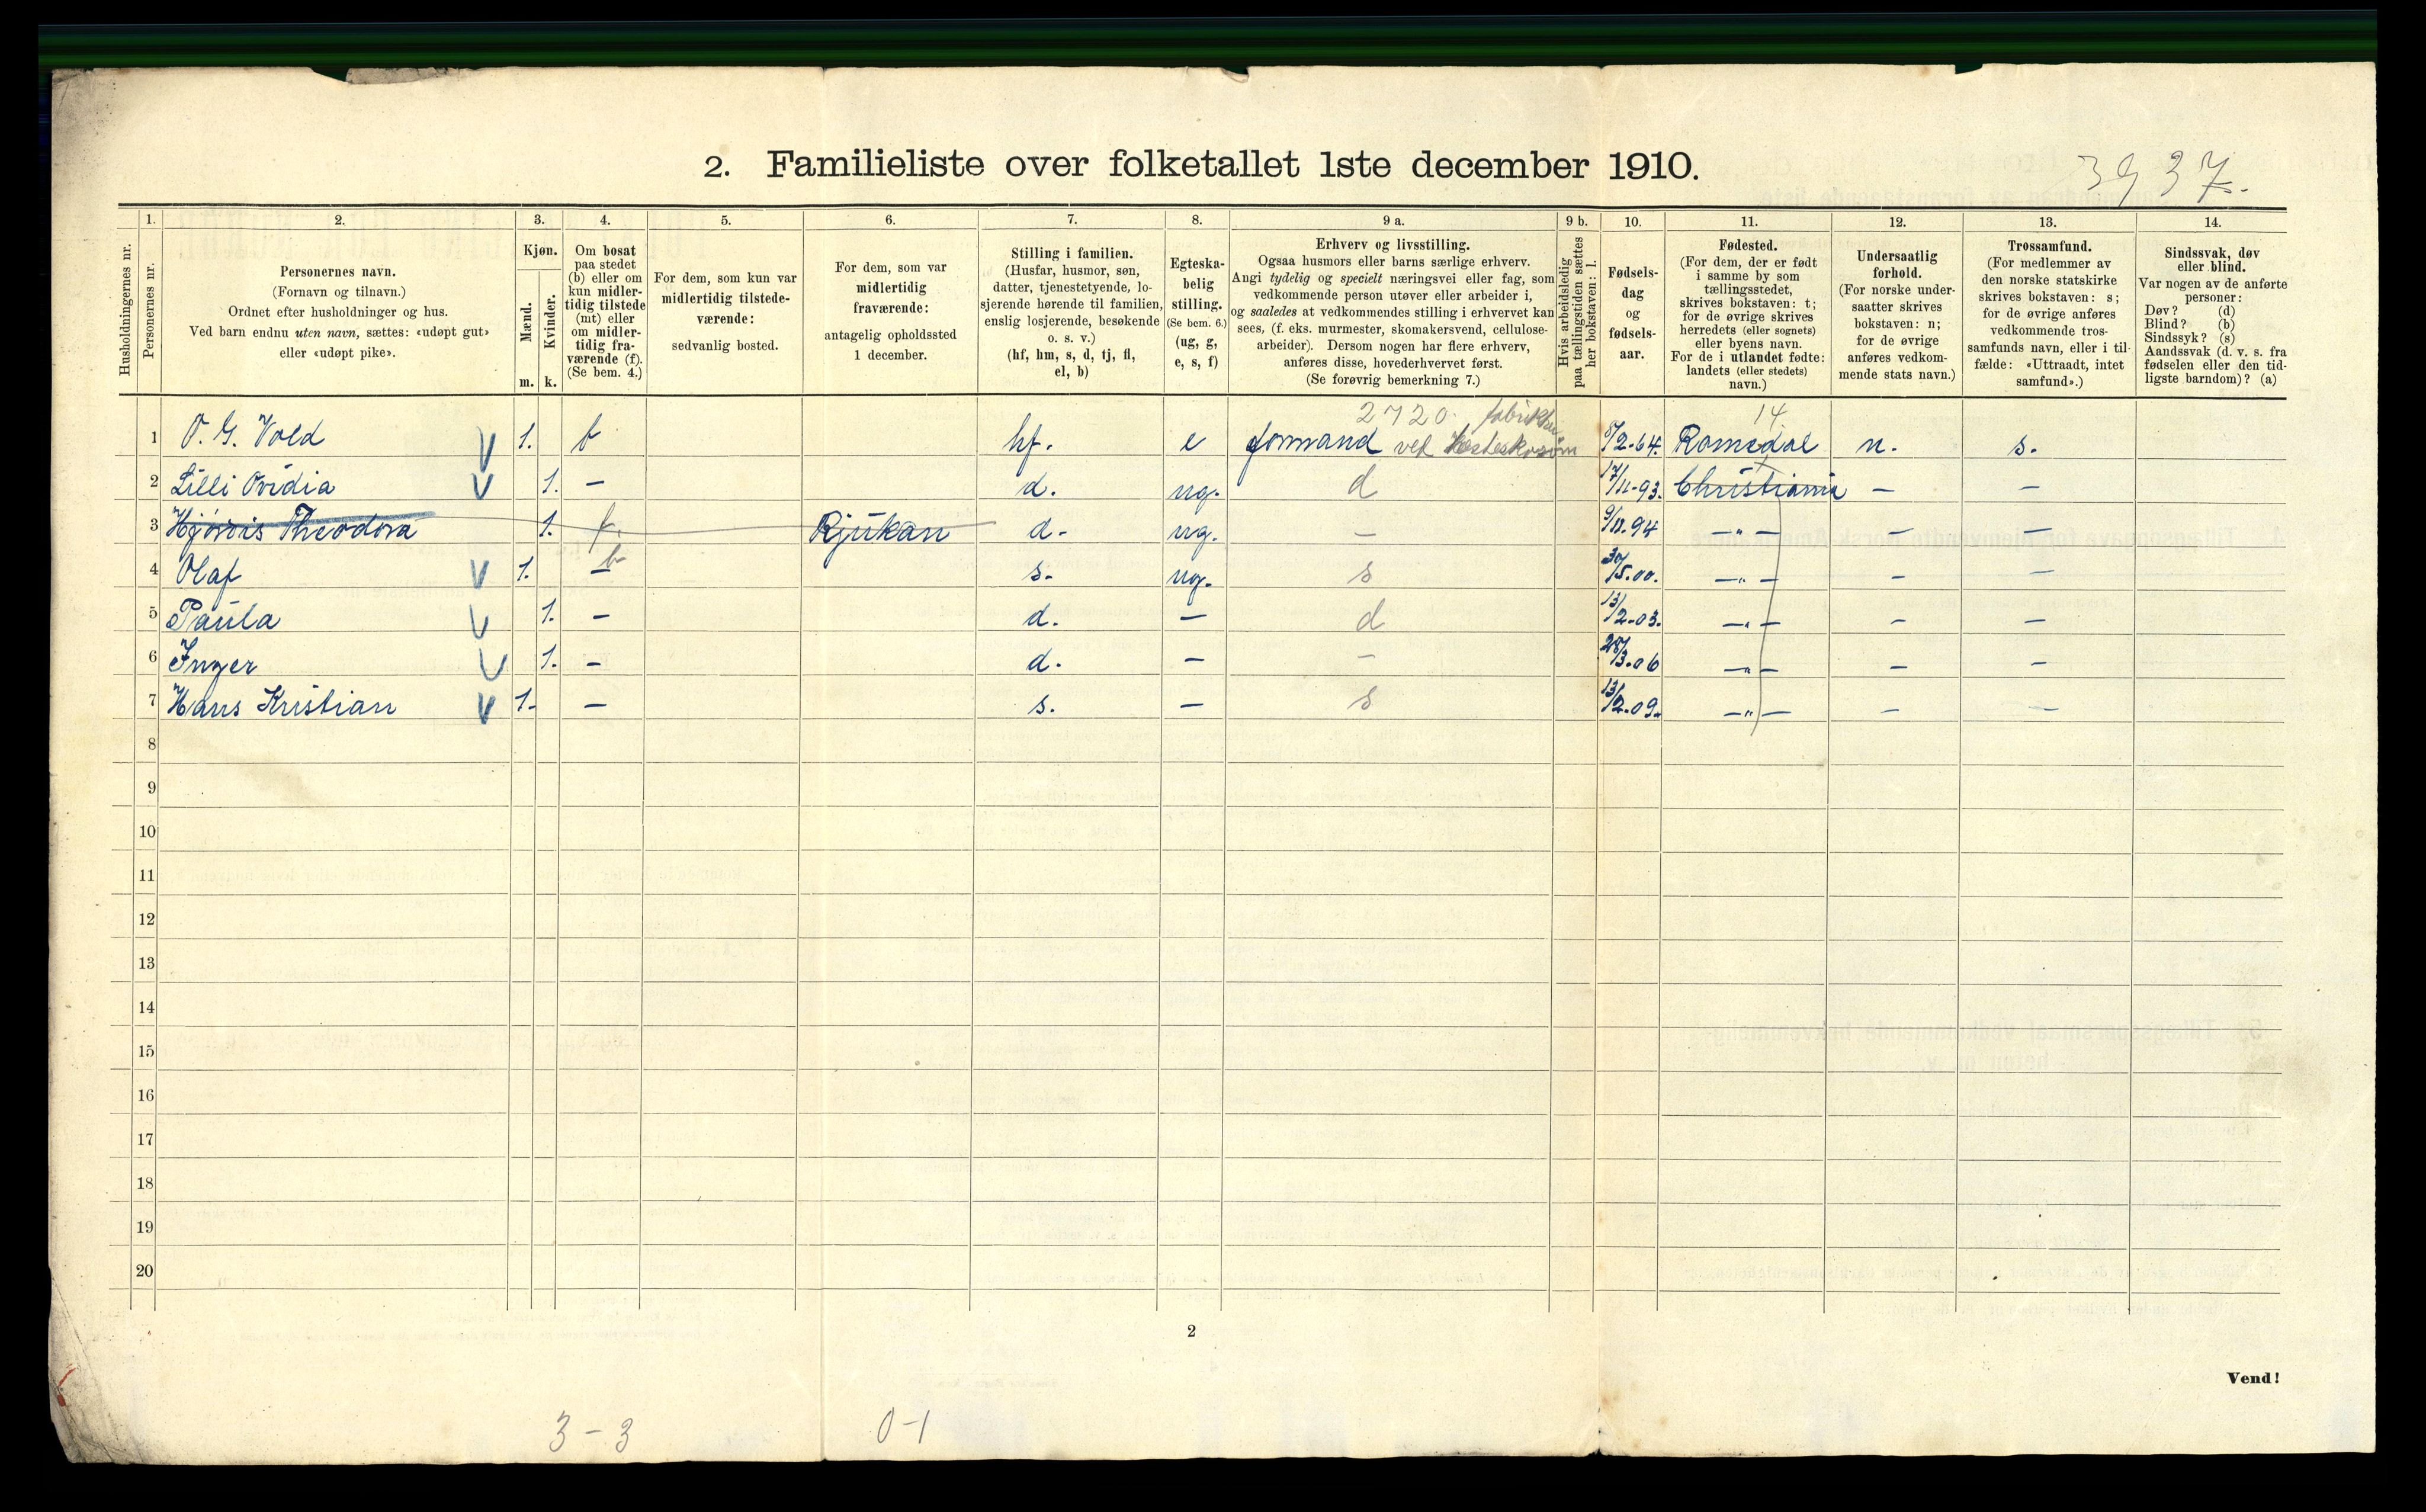 2. Familieliste over folketallet 1ste december 1910.
3937.
Husholdningernes nr.
1.
Personernes nr.
2.
Personernes navn.
(Fornavn og tilnavn.)
Ordnet efter husholdninger og hus.
Ved barn endnu uten navn, sættes: «udøpt gut»
eller «udøpt pike».
3.
Kjøn.
Mænd.
Kvinder.
m. k.
4.
Om bosat
paa stedet
(b) eller om
kun midler-
tidig tilstede
(mt) eller
om midler-
tidig fra-
værende (f).
(Se bem. 4.)
5.
For dem, som kun var
midlertidig tilstede-
værende:
sedvanlig bosted.
6.
For dem, som var
midlertidig
fraværende:
antagelig opholdssted
1 december.
7.
Stilling i familien.
(Husfar, husmor, søn,
datter, tjenestetyende, lo-
sjerende hørende til familien,
enslig losjerende, besøkende
o. s. v.)
(hf, hm, s, d, tj, fl,
el, b)
8.
Egteska-
belig
stilling.
(Se bem. 6.)
(ug, g,
e, s, f)
9 a.
Erhverv og livsstilling.
Ogsaa husmors eller barns særlige erhverv.
Angi tydelig og specielt næringsvei eller fag, som
vedkommende person utøver eller arbeider i,
og saaledes at vedkommendes stilling i erhvervet kan
sees, (f. eks. murmester, skomakersvend, cellulose-
arbeider). Dersom nogen har flere erhverv,
anføres disse, hovederhvervet først.
(Se forøvrig bemerkning 7.)
9 b.
Hvis arbeidsledig
paa tællingstiden sættes
her bokstaven: l.
10.
Fødsels-
dag
og
fødsels-
aar.
11.
Fødested.
(For dem, der er født
i samme by som
tællingsstedet,
skrives bokstaven: t;
for de øvrige skrives
herredets (eller sognets)
eller byens navn.
For de i utlandet fødte:
landets (eller stedets)
navn.)
12.
Undersaatlig
forhold.
(For norske under-
saatter skrives
bokstaven: n;
for de øvrige
anføres vedkom-
mende stats navn.)
13.
Trossamfund.
(For medlemmer av
den norske statskirke
skrives bokstaven: s;
for de øvrige anføres
vedkommende tros-
samfunds navn, eller i til-
fælde: «Uttraadt, intet
samfund».)
14.
Sindssvak, døv
eller blind.
Var nogen av de anførte
personer:
Døv? (d)
Blind? (b)
Sindssyk? (s)
Aandssvak (d. v. s. fra
fødselen eller den tid-
ligste barndom)? (a)
2720. 14
1 O. G. Vold V 1. b hf. e formand ved Hesteskosøm 8/2-64. Romsdal n. s.
2 Lilli Ovidia V 1. – d. ug. d 17/11-93. Christiania – –
3 Hjørdis Theodora 1. f. Rjukan d- ug. – 9/12.94 –"– – –
4 Olaf V 1. – b s- ug. s 30/5.00. –"– – –
5 Paula V 1. – d. – d 13/2-03. –"– – –
6 Inger V 1. – d. – – 28/3.06 –"– – –
7 Hans Kristian V 1- – s. – s 13/2.09. –"– – –
8
9
10
11
12
13
14
15
16
17
18
19
20
2
Vend!
3-3 0-1